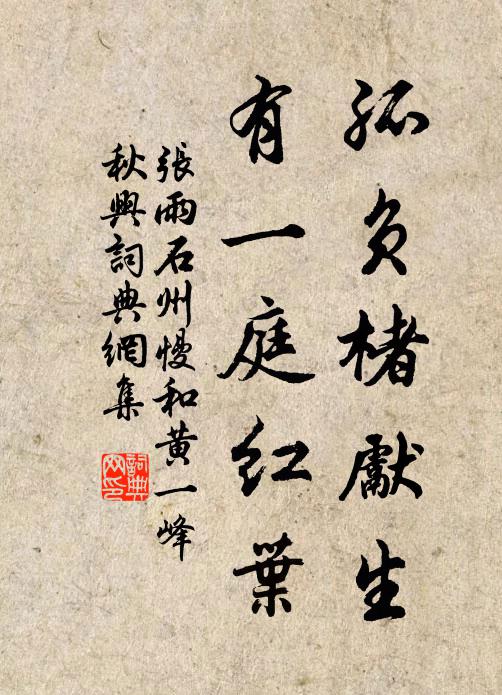 孤負楮獻生
有一庭紅葉
張雨石州慢和黃一峰
秋興詞典網集
詞典
网印